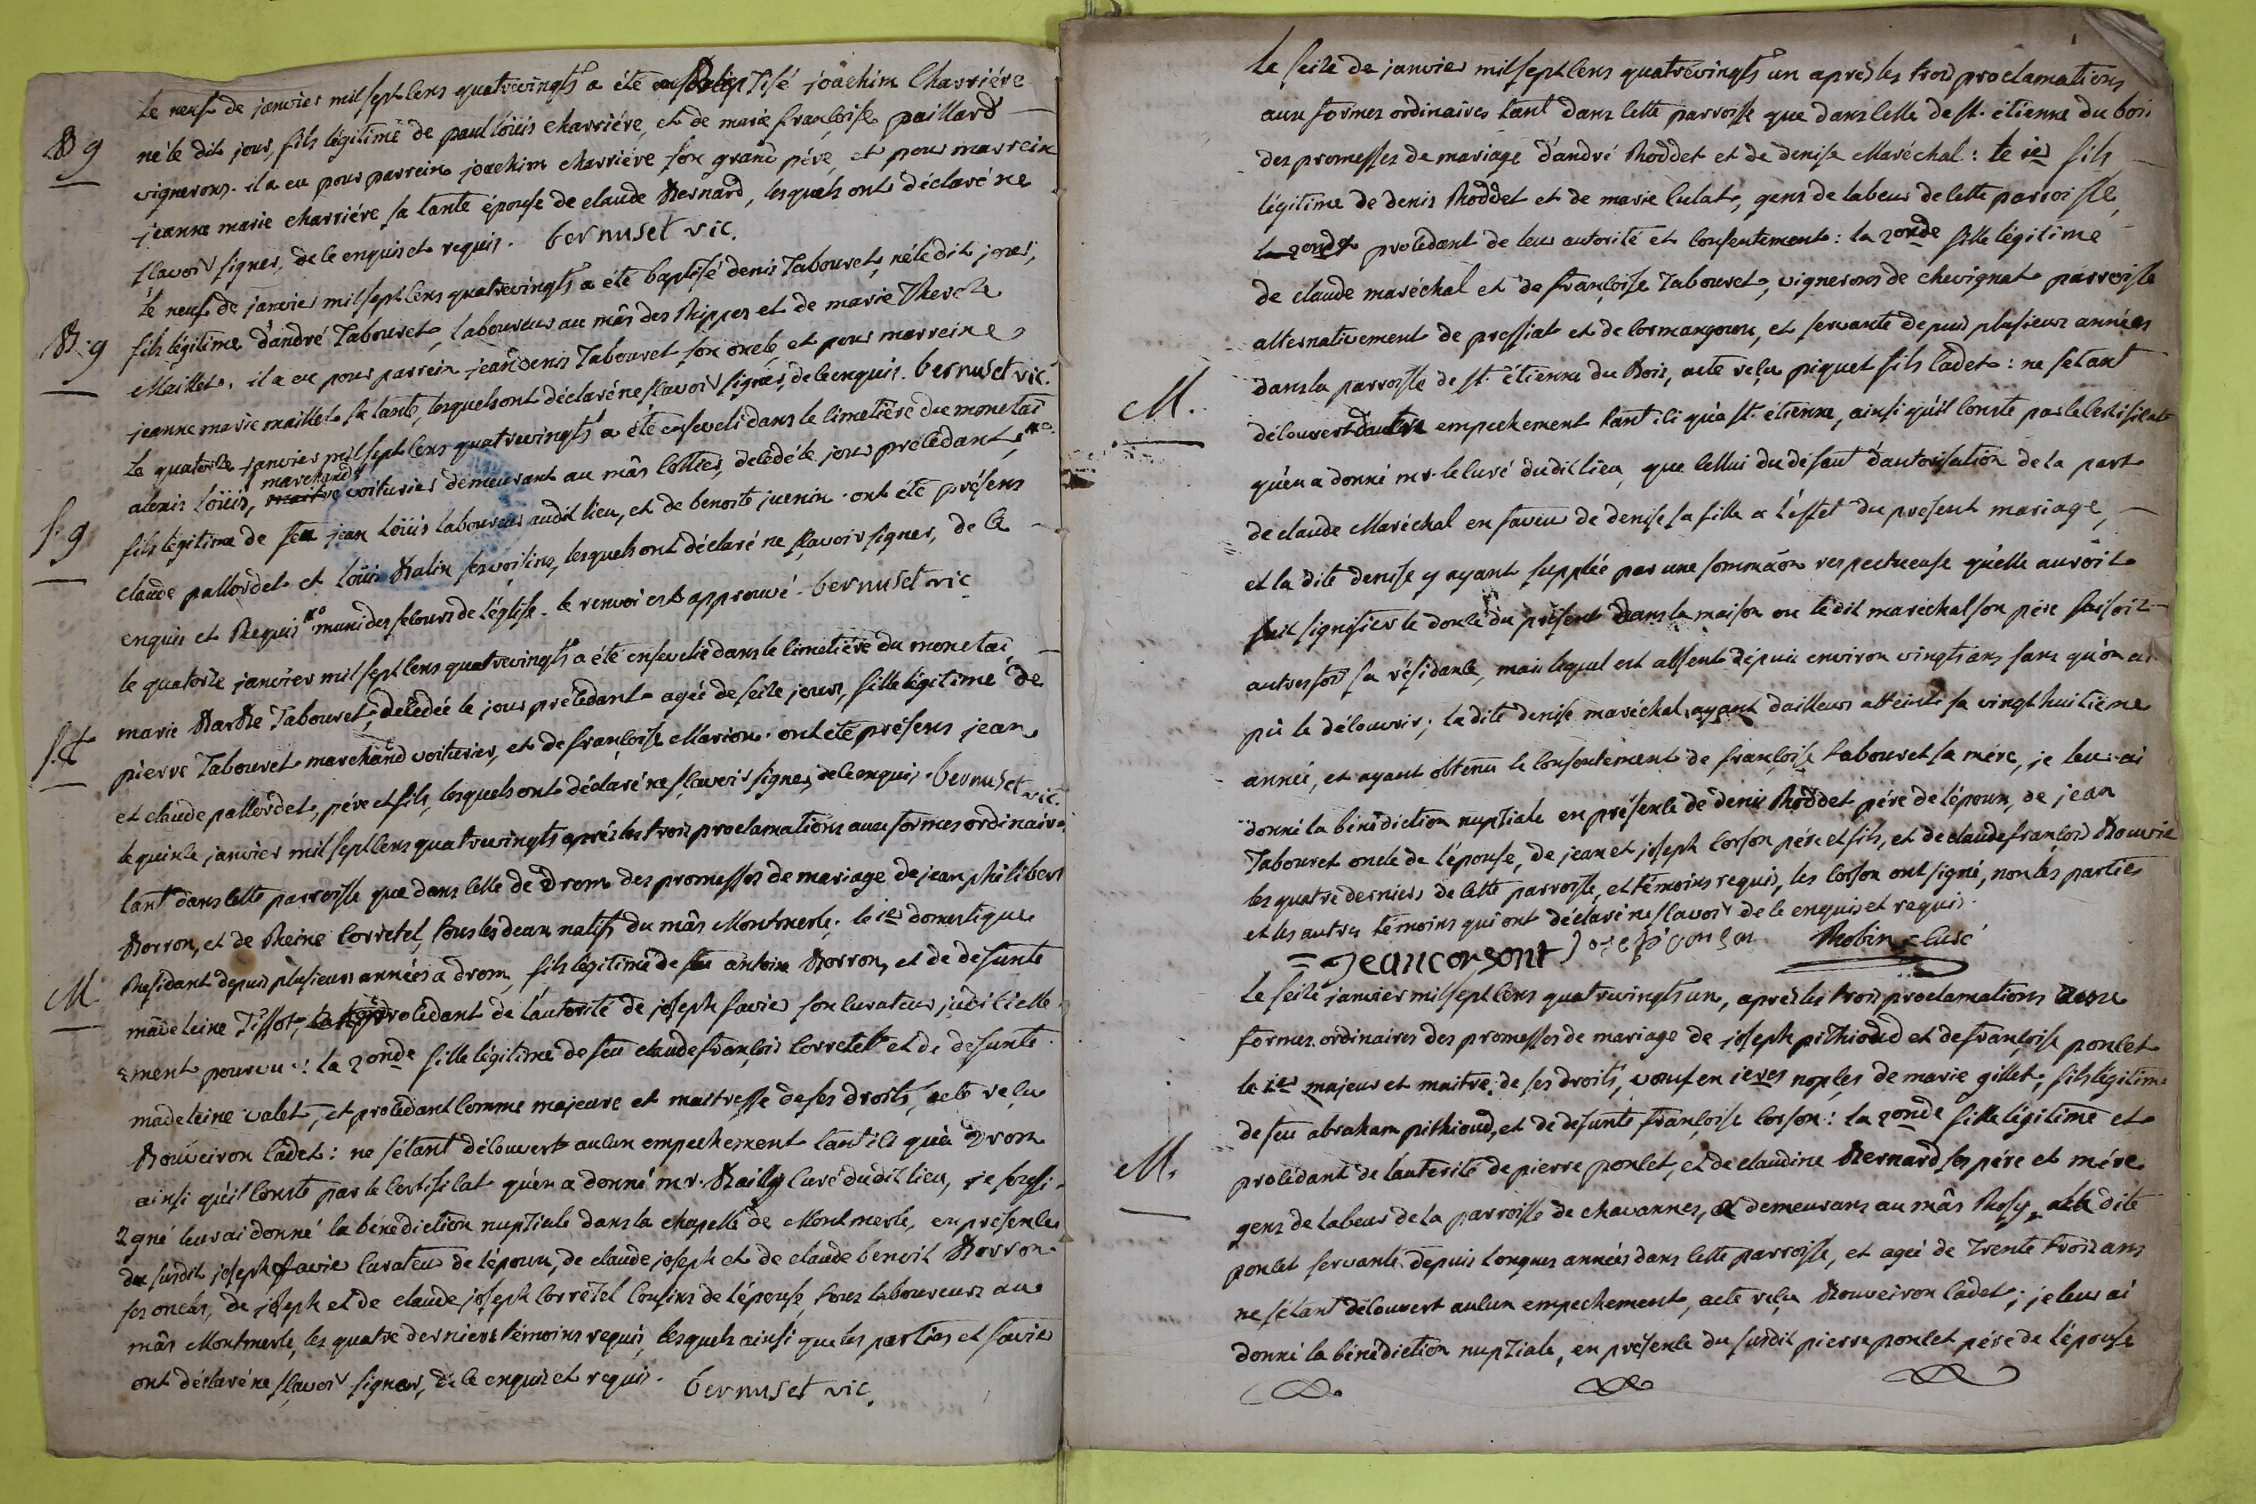 Le neuf de janvier mil sept cens quatrevingts a été baptisé joachim Charriére
B g
né le dit jour, fils légitime de paul loüis charriére, et de marie françoise paillard
vignerons. il a eu pour parrein joachim charriére son grand pére, et pour marreine
jeanne marie charriére sa tante épouse de claude Bernard, lesquels ont déclaré ne
sçavoir signer, de ce enquis et requis. bernuset vic.
Le neuf de janvier mil sept cens quatrevingts a été baptisé denis Tabouret, né le dit jour,
B. g
fils légitime d'andré Tabouret, laboureur au mâs des Rippes et de marie Therese
Maillet. il a eu pour parrein jean denis Tabouret son oncle et pour marreine
jeanne marie maillet sa tante, lesquels ont déclaré ne sçavoir signer, de ce enquis. bernuset vic.
Le quatorze janvier mil sept cens quatrevingts a été enseveli dans le cimetière du monetai
alexis loüis, marchand voiturier demeurant au mâs cottier, décedé le jour précedant,
S. g
fils légitime de feu jean loüis laboureur audit lieu, et de benoite juenin. ont été présens
claude pallordet et loüis Balin ses voisins, lesquels ont déclaré ne sçavoir signer, de ce
enquis et Requis muni des secours de l'église. le renvoi est approuvé. bernuset vic
le quatorze janvier mil sept cens quatrevingts a été ensevelie dans le cimetiére du monetai,
marie Barbe Tabouret, décedée le jour précedant agée de seize jours, fille légitime de
S. f
pierre Tabouret marchand voiturier, et de françoise Marion. ont été présens jean
et claude pallordet, pére et fils, lesquels ont déclaré ne sçavoir signer, de ce enquis. bernuset vic.
le quinze janvier mil sept cens quatrevingts aprés les trois proclamations aux formes ordinaires
tant dans cette parroisse que dans celle de Drom des promesses de mariage de jean philibert
Borron, et de Reine Corretel, tous les deux natifs du mâs Montmerle. le 1er domestique
M
Residant depuis plusieurs années a drom, fils légitime de feu antoine Borron, et de defunte
madeleine Tissot, procedant de l'autorité de joseph favier son curateur judicielle
ment pourvu: la 2onde fille légitime de feu claude françois Corretel et de defunte
madeleine valet, et procédant comme majeure et maitresse de ses droits, acte reçu
Bouveiron Cadet: ne s'étant découvert aucun empechement tant ici qu'à Drom
ainsi qu'il conste par le certificat qu'en a donné mr. Bailly curé dudit lieu, je sousi-
gné leur ai donné la bénédiction nuptiale dans la chapelle de Montmerle, en présence
du susdit joseph favier curateur de l'époux, de claude joseph et de claude benoit Borron
ses oncles, de joseph et de claude joseph Corretel cousins de l'épouse, tous laboureurs au
mâs Montmerle, les quatre derniers témoins requis, lesquels ainsi que les parties et favier
ont déclaré ne sçavoir signer, de ce enquis et requis. bernuset vic.
Le seize de janvier mil sept cens quatrevingts un aprés les trois proclamations
aux formes ordinaires tant dans cette parroisse que dans celle de st. étienne du bois
des promesses de mariage d'andré Roddet et de denise Maréchal: le 1er fils
légitime de denis Roddet et de marie Culat, gens de labeur de cette parroisse,
procédant de leur autorité et consentement: la 2onde fille légitime
de claude maréchal et de françoise Tabouret, vignerons de chevignat parroisse
alternativement de pressiat et de Cormangoux, et servante depuis plusieurs années
dans la parroisse de st. étienne du Bois, acte reçu piquet fils Cadet: ne s'étant
M.
découvert d'autre empechement tant ici qu'a st. étienne, ainsi qu'il conste par le certificat
qu'en a donné mr. le curé dudit lieu, que cellui du défaut d'autorisation de la part
de claude Maréchal en faveur de denise sa fille a l'effet du présent mariage,
et la dite denise y ayant supplée par une sommäon respectueuse qu'elle auroit
fait signifier le douze du présent dans la maison ou le dit maréchal son pére faisoit
autresfois sa résidance, mais lequel est absent depuis environ vingts ans sans qu'on ai
pû le découvrir; la dite denise maréchal ayant dailleurs atteint sa vingt huitiéme
année, et ayant obtenu le consentement de françoise Tabouret sa mére, je leur ai
donné la bénédiction nuptiale en présence de denis Roddet pére de l'époux, de jean
Tabouret oncle de l'épouse, de jean et joseph Corson pére et fils, et de claude françois Bouvie
les quatre derniers de cette parroisse, et témoins requis, les Corson ont signé, non les parties
et les autres témoins qui ont déclaré ne sçavoir de ce enquis et requis.
= jean corsont joseph corson Robin curé
Le seize janvier mil sept cens quatrevingts un, aprés les trois proclamations aux
formes ordinaires des promesses de mariage de joseph pithioud et de françoise poncet
le 1er majeur et maitre de ses droits, veuf en 1eres nopces de marie gillet, fils légitime
de feu abraham pithioud, et de defunte françoise Corson: la 2onde fille légitime et
M.
procédant de l'autorité de pierre poncet, et de claudine Bernard ses pére et mére
gens de labeur de la parroisse de chavannes, demeurans au mâs Rosy, la dite
poncet servante depuis longues années dans cette parroisse, et agée de Trente trois ans
ne s'étant découvert aucun empechement, acte reçu Bouveiron Cadet; je leur ai
donné la bénédiction nuptiale, en présence du susdit pierre poncet pére de l'épouse